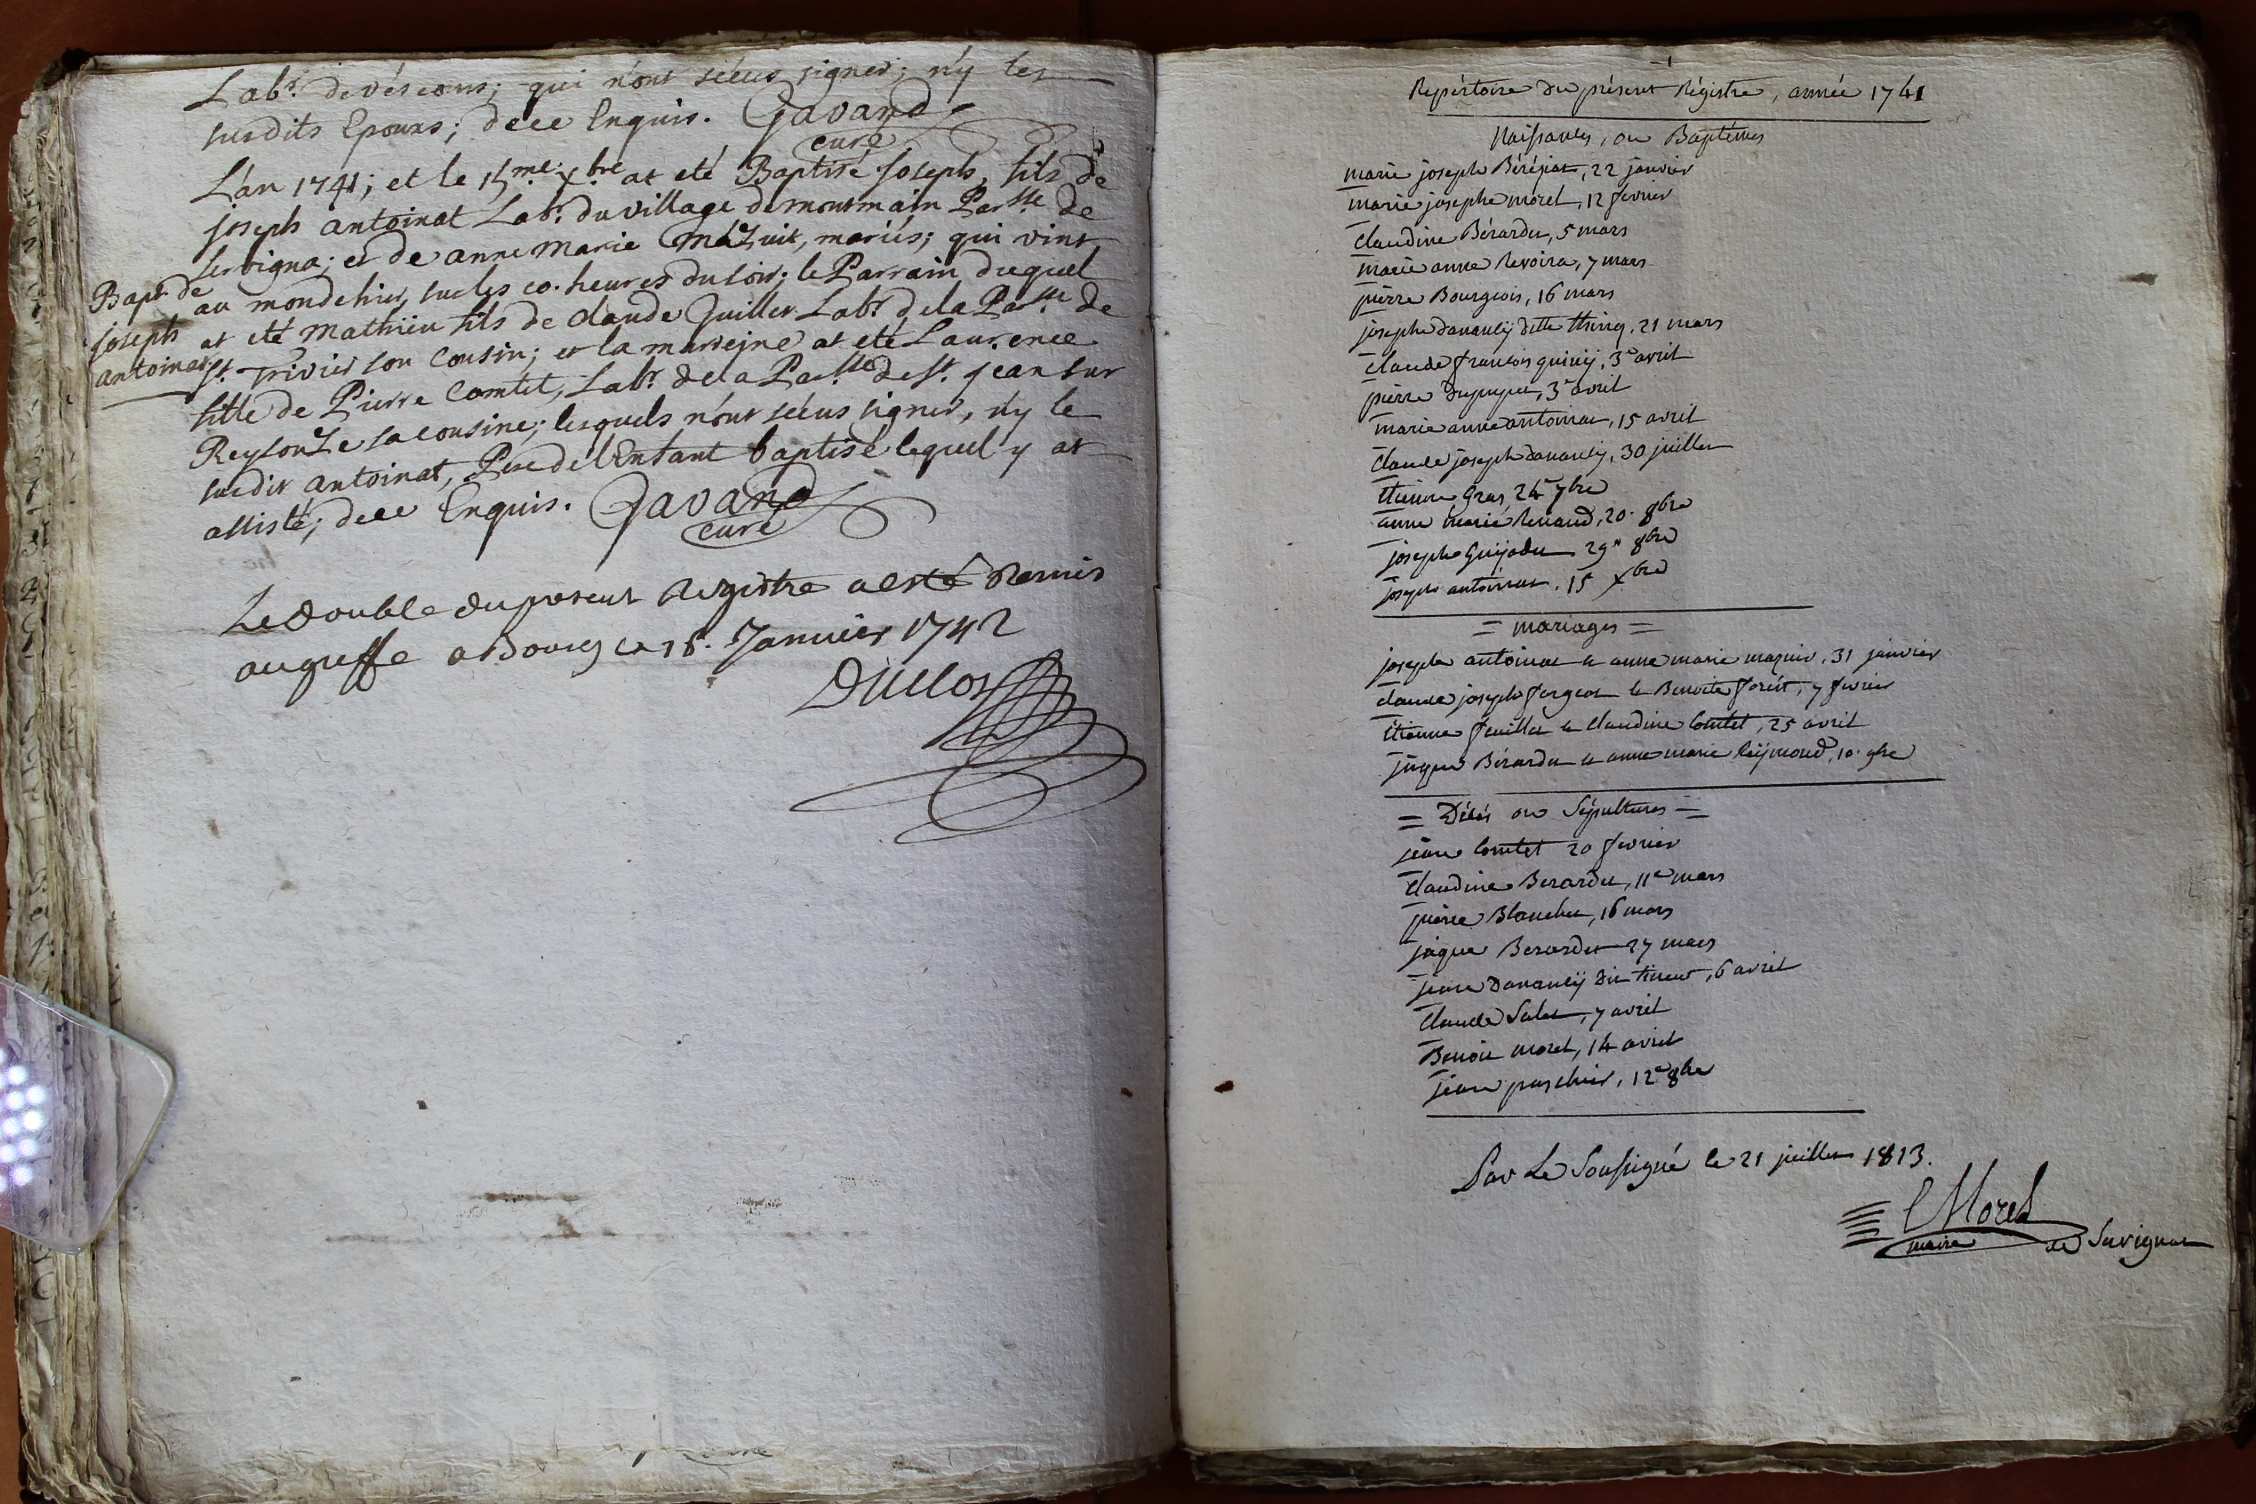 Labr. de véscours; qui n'ont scéus signer; n'y les
susdits Epoux; de ce Enquis. Gavand
curé
L'an 1741; et le 15me. xbre at eté Baptisé Joseph, fils de
joseph antoinat Labr. du village de montmain Parsse de
servigna; et de anne marie Mazuit, mariés; qui vint
au monde hier, sur les 10. heures du soir; le Parrain duquel
Bapt. de
joseph
antoinat
at eté Mathieu fils de claude Guillet Labr. de la Parsse de
st. Trivier son Cousin; et la marreine at eté Laurence
fille de Pierre Comtet, Labr. de la Parsse de st. jean sur
Reysouze sa cousine; lesquels n'ont scéus signer, n'y le
susdit antoinat, Pere de l'Enfant baptisé lequel y at
assisté; de ce Enquis. Gavand
curé
Le double du present Registre a esté Remis
au greffe a Bourg ce 15. Janvier 1742
Duclos
Repértoire du présent Régistre, année 1741
Naissances, ou Baptêmes
marie joseph Béréziat, 22 janvier
marie josephe morel, 12 fevrier
Claudine Bérardet, 5 mars
marie anne Revoira, 7 mars
pièrre Bourgeois, 16 mars
josephe dananceÿ ditte, 21 mars
Claude francois, 3e avril
pièrre dupupet, 3e avril
marie anne antoinat, 15 avril
Claude joseph dananceÿ, 30 juillet
Etienne Gras, 24e 7bre
anne marie Renaud, 20. 8bre
josephe Guÿadet 29e 8bre
joseph antoinat. 15 xbre
= mariages =
joseph antoinat et anne marie mazuir, 31 janvier
claude joseph fergeat et Benoite forêt, 7 fevrier
Etienne feuillet et Claudine Comtet, 25 avril
jaque Bérardet et anne marie Reÿmond, 10. 9bre
= Décés ou Sépultures =
jean Comtet 20 fevrier
Claudine Berardet, 11e mars
pièrre Blanchet, 16 mars
jaque Berardet 27 mars
jean Dananceÿ dit, 6 avril
Claude Salat, 7 avril
Benoit morel, 14 avril
jean puschier, 12e 8bre
Par Le Soussigné le 21 juillet 1813.
Morel
maire de Servignat